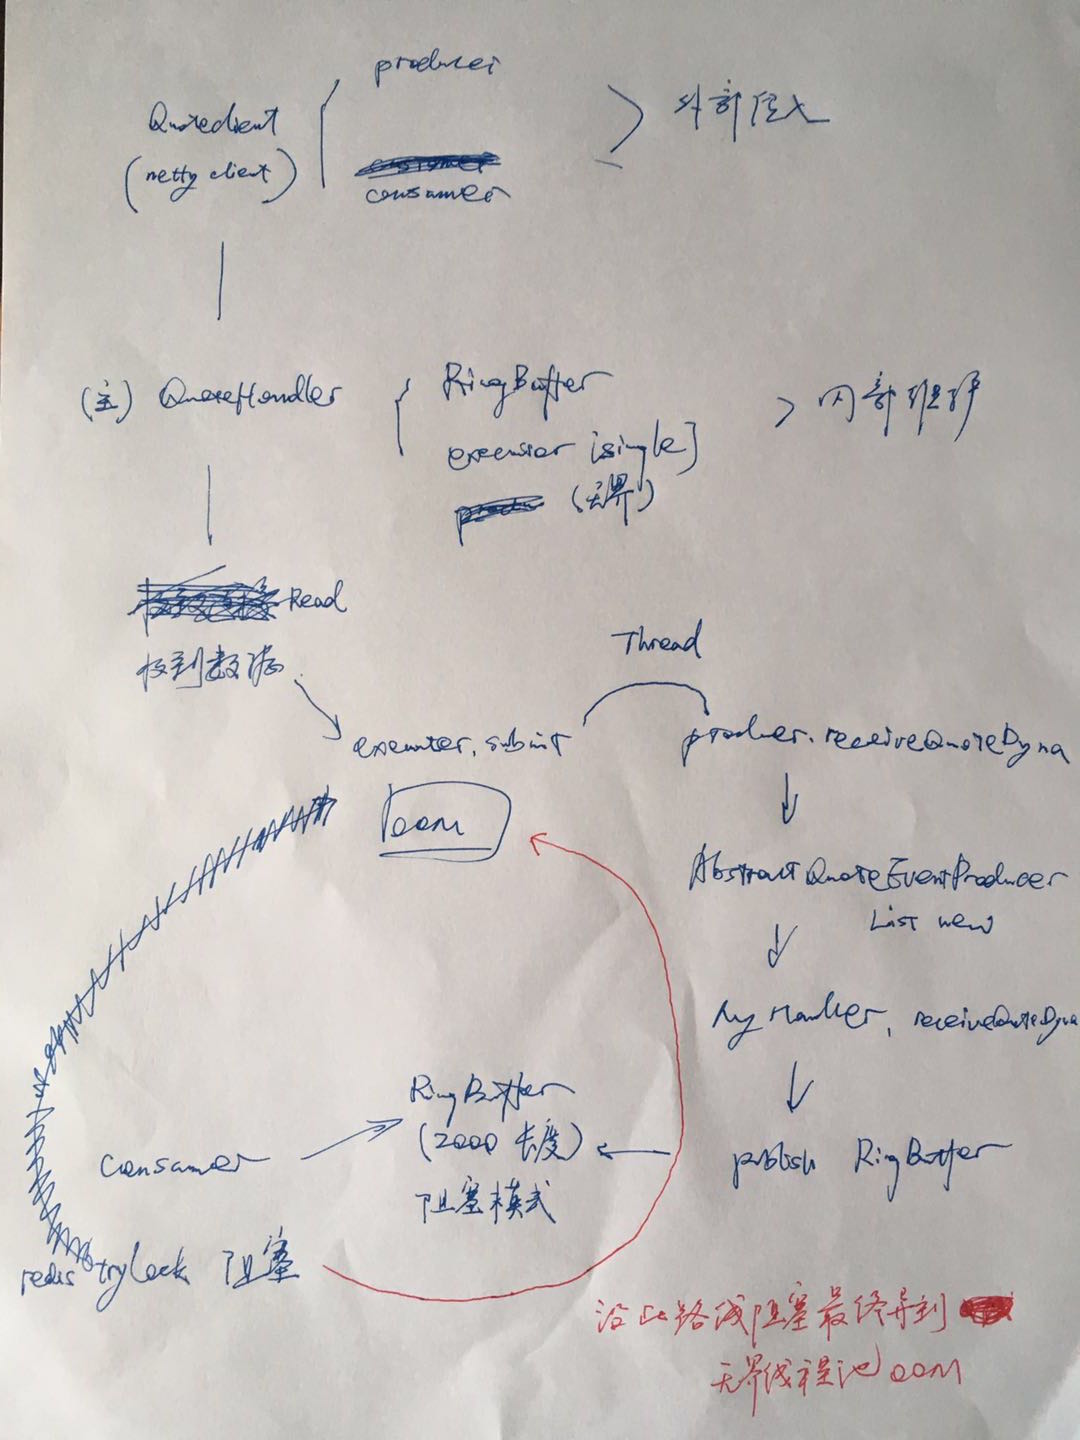 producer
Quoteclient
(netty client)
consamer
外部传入
(主) QuoteHandler
RingBuffer
executor [single]
(无界)
内部维护
Read
接到数据
Thread
executer.submit
producer.receiveQuoteDyna
oom
AbstractQuoteEventProducer
List new
MyHandler.receiveQuoteDyna
RingBuffer
(2000 长度)
阻塞模式
consamer
publish RingBuffer
redis trylock 阻塞
沿此路线阻塞最终导到
无界线程池 OOM